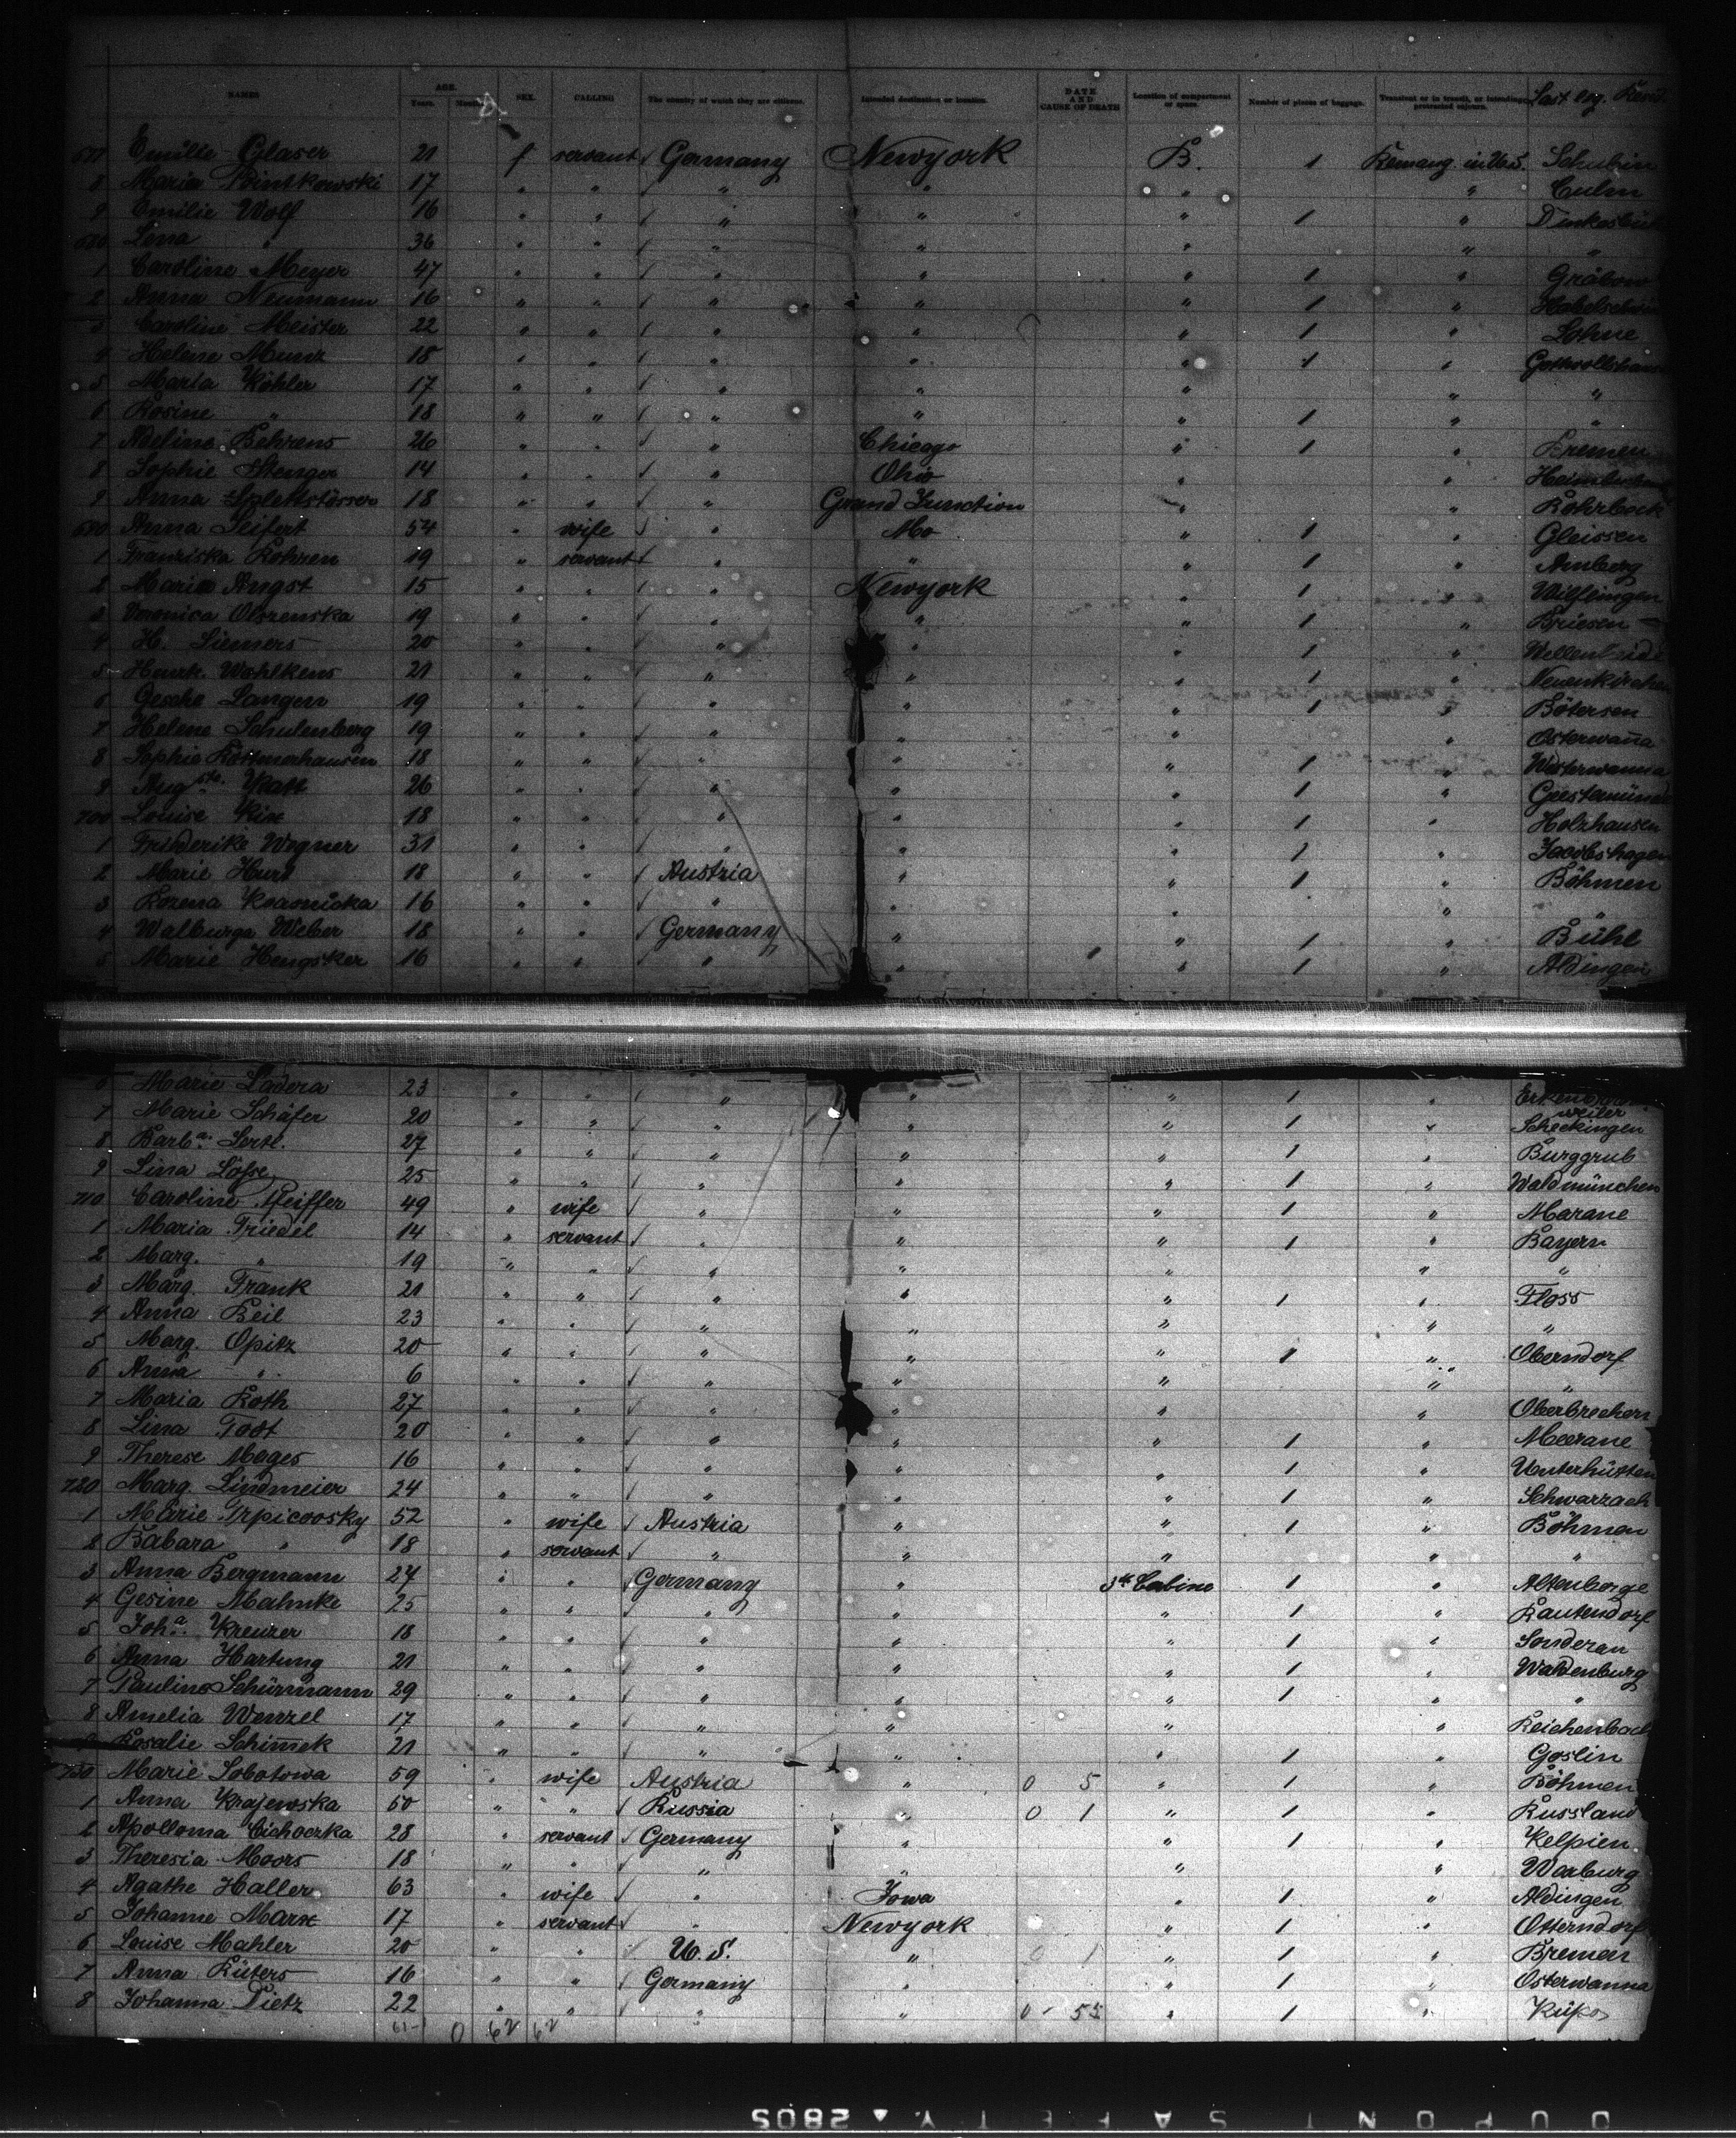 NAMES AGE. Years. Months. SEX. CALLING The country of which they are citizens. Intended destination or location. DATE AND CAUSE OF DEATH Location of compartment or space. Number of pieces of baggage. Transient or in transit, or intending protracted sojourn. Last
677 Emilie Glaser 21 f servant Germany Newyork B. 1 Schubin
8 Maria Pointkowski 17 " " " " " " Culm
9 Emilie Wolf 16 " " " " " 1 "
680 Lina " 36 " " " " " " "
1 Caroline Meyer 47 " " " " " 1 " Grabow
2 Anna Neumann 16 " " " " " 1 "
3 Caroline Meister 22 " " " " " 1 " Lohne
4 Helene Munz 18 " " " " " 1 "
5 Maria Köhler 17 " " " " " " "
6 Rosine " 18 " " " " " 1 " "
7 Adeline Behrens 26 " " " Chicago " 1 " Bremen
8 Sophie Stenger 14 " " " Ohio " "
9 Anna Splettstösser 18 " " " Grand Junction " " Rohrbeck
690 Anna Seifert 54 " wife " Mo " 1 " Gleissen
1 Franziska Rohren 19 " servant " " " 1 " Amberg
2 Maria Angst 15 " " " Newyork " 1 " Wilflingen
3 Veronica Olszenska 19 " " " " " 1 " Briesen
4 H. Siemers 20 " " " " " 1 "
5 Henrk. Wohlkens 21 " " " " " 1 " Neuenkirchen
6 Gesche Langen 19 " " " " " 1 " Bötersen
7 Helene Schulenberg 19 " " " " " " Osterwana
8 Sophie 18 " " " " " 1 " Westerwanna
9 Augste. Katt 26 " " " " " 1 " Geestemünde
700 Louise Kix 18 " " " " " 1 " Holzhausen
1 Friderike Wegner 31 " " " " " 1 " Jacobshagen
2 Marie 18 " " Austria " " 1 " Böhmen
3 Rozena Kvasnicka 16 " " " " " "
4 Walburga Weber 18 " " Germany " " 1 " Bühl
5 Marie Hengsker 16 " " " " " 1 " Aldingen
6 Marie Ladera 23 " " " " " 1 " weiler
7 Marie Schäfer 20 " " " " " 1 " Scheckingen
8 Barba. Sertl. 27 " " " " " 1 " Burggrub
9 Lina Löfse 25 " " " " " 1 " Waldmünchen
710 Caroline Pfeiffer 49 " wife " " " 1 " Marane
1 Maria Friedel 14 " servant " " " 1 " Bayern
2 Marg. " 19 " " " " " " "
3 Marg. Frank 21 " " " " " 1 " Floss
4 Anna Beil 23 " " " " " " "
5 Marg. Opitz 20 " " " " " 1 " Oberndorf
6 Anna " 6 " " " " " " "
7 Maria Roth 27 " " " " " " Oberbrechen
8 Lina Todt 20 " " " " " 1 " Meerane
9 Therese Mages 16 " " " " " 1 " Unterhütten
720 Marg. Lindmeier 24 " " " " " 1 " Schwarzach
1 Marie Trpicovsky 52 " wife Austria " " 1 " Böhmen
2 Babara " 18 " servant " " " " "
3 Anna Bergmann 24 " " Germany " 3te Cabine 1 " Altenberge
4 Gesine Mahnke 25 " " " " " 1 " Rautendorf
5 Joha. Kreuzer 18 " " " " " 1 " Sonderan
6 Anna Hartung 21 " " " " " 1 " Waldenburg
7 Pauline Schürmann 29 " " " " " 1 " "
8 Amelia Wenzel 17 " " " " " " Reichenbach
9 Rosalie Schimek 21 " " " " " 1 " Goslin
730 Marie Sobotowa 59 " wife Austria " 0 5 " 1 " Böhmen
1 Anna Krajewska 60 " " Russia " 0 1 " 1 " Russland
2 Apollonia Cichoczka 28 " servant Germany " " 1 " Kelpien
3 Theresia Moors 18 " " " " " " Warburg
4 Agathe Haller 63 " wife " Iowa " 1 " Aldingen
5 Johanne Marx 17 " servant " Newyork " 1 " Otterndorf
6 Louise Mahler 20 " " U.S. " 0 1 " 1 " Bremen
7 Anna Rüters 16 " " Germany " " 1 " Osterwanna
8 Johanna Dietz 22 " " " " 0 - 55 " 1 "
61 - 0 62 62
DUPONT SAFETY 2805